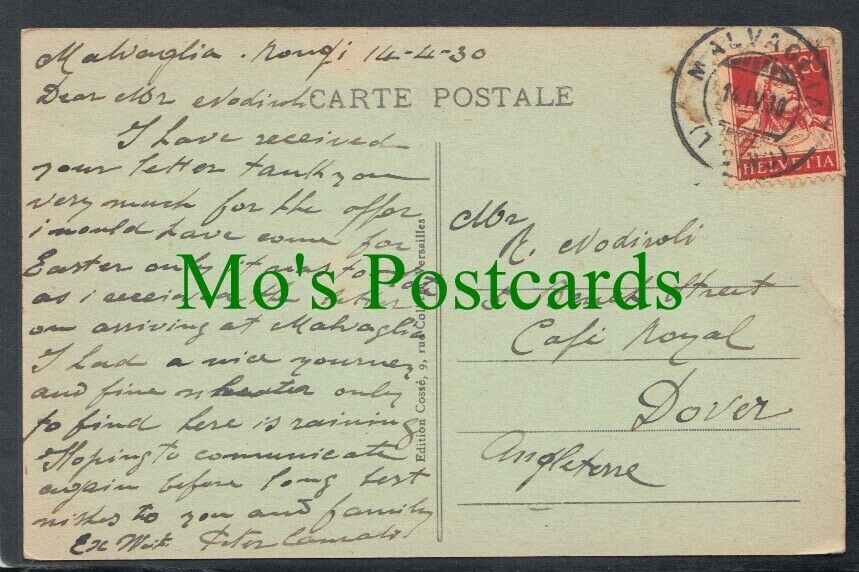 Malvaglia . Rongi 14-4-30
Dear Mr Nodiroli
CARTE POSTALE
I have received
your letter tank you
very much for the offer
i would have come for
Easter only it was to
as i received the letter
on arriving at Malvaglia
I had a nice yourney
and fine only
to find here is raining
Hoping to comunicate
again before long best
wishes to you and family
Ex Wait. Peter
Edition Cossé, 9, rue Versailles
MALVAGLIA
14.IV.30
20
HELVETIA
Mr
R. Nodiroli
Street
Café Royal
Dover
Angleterre
Mo's Postcards